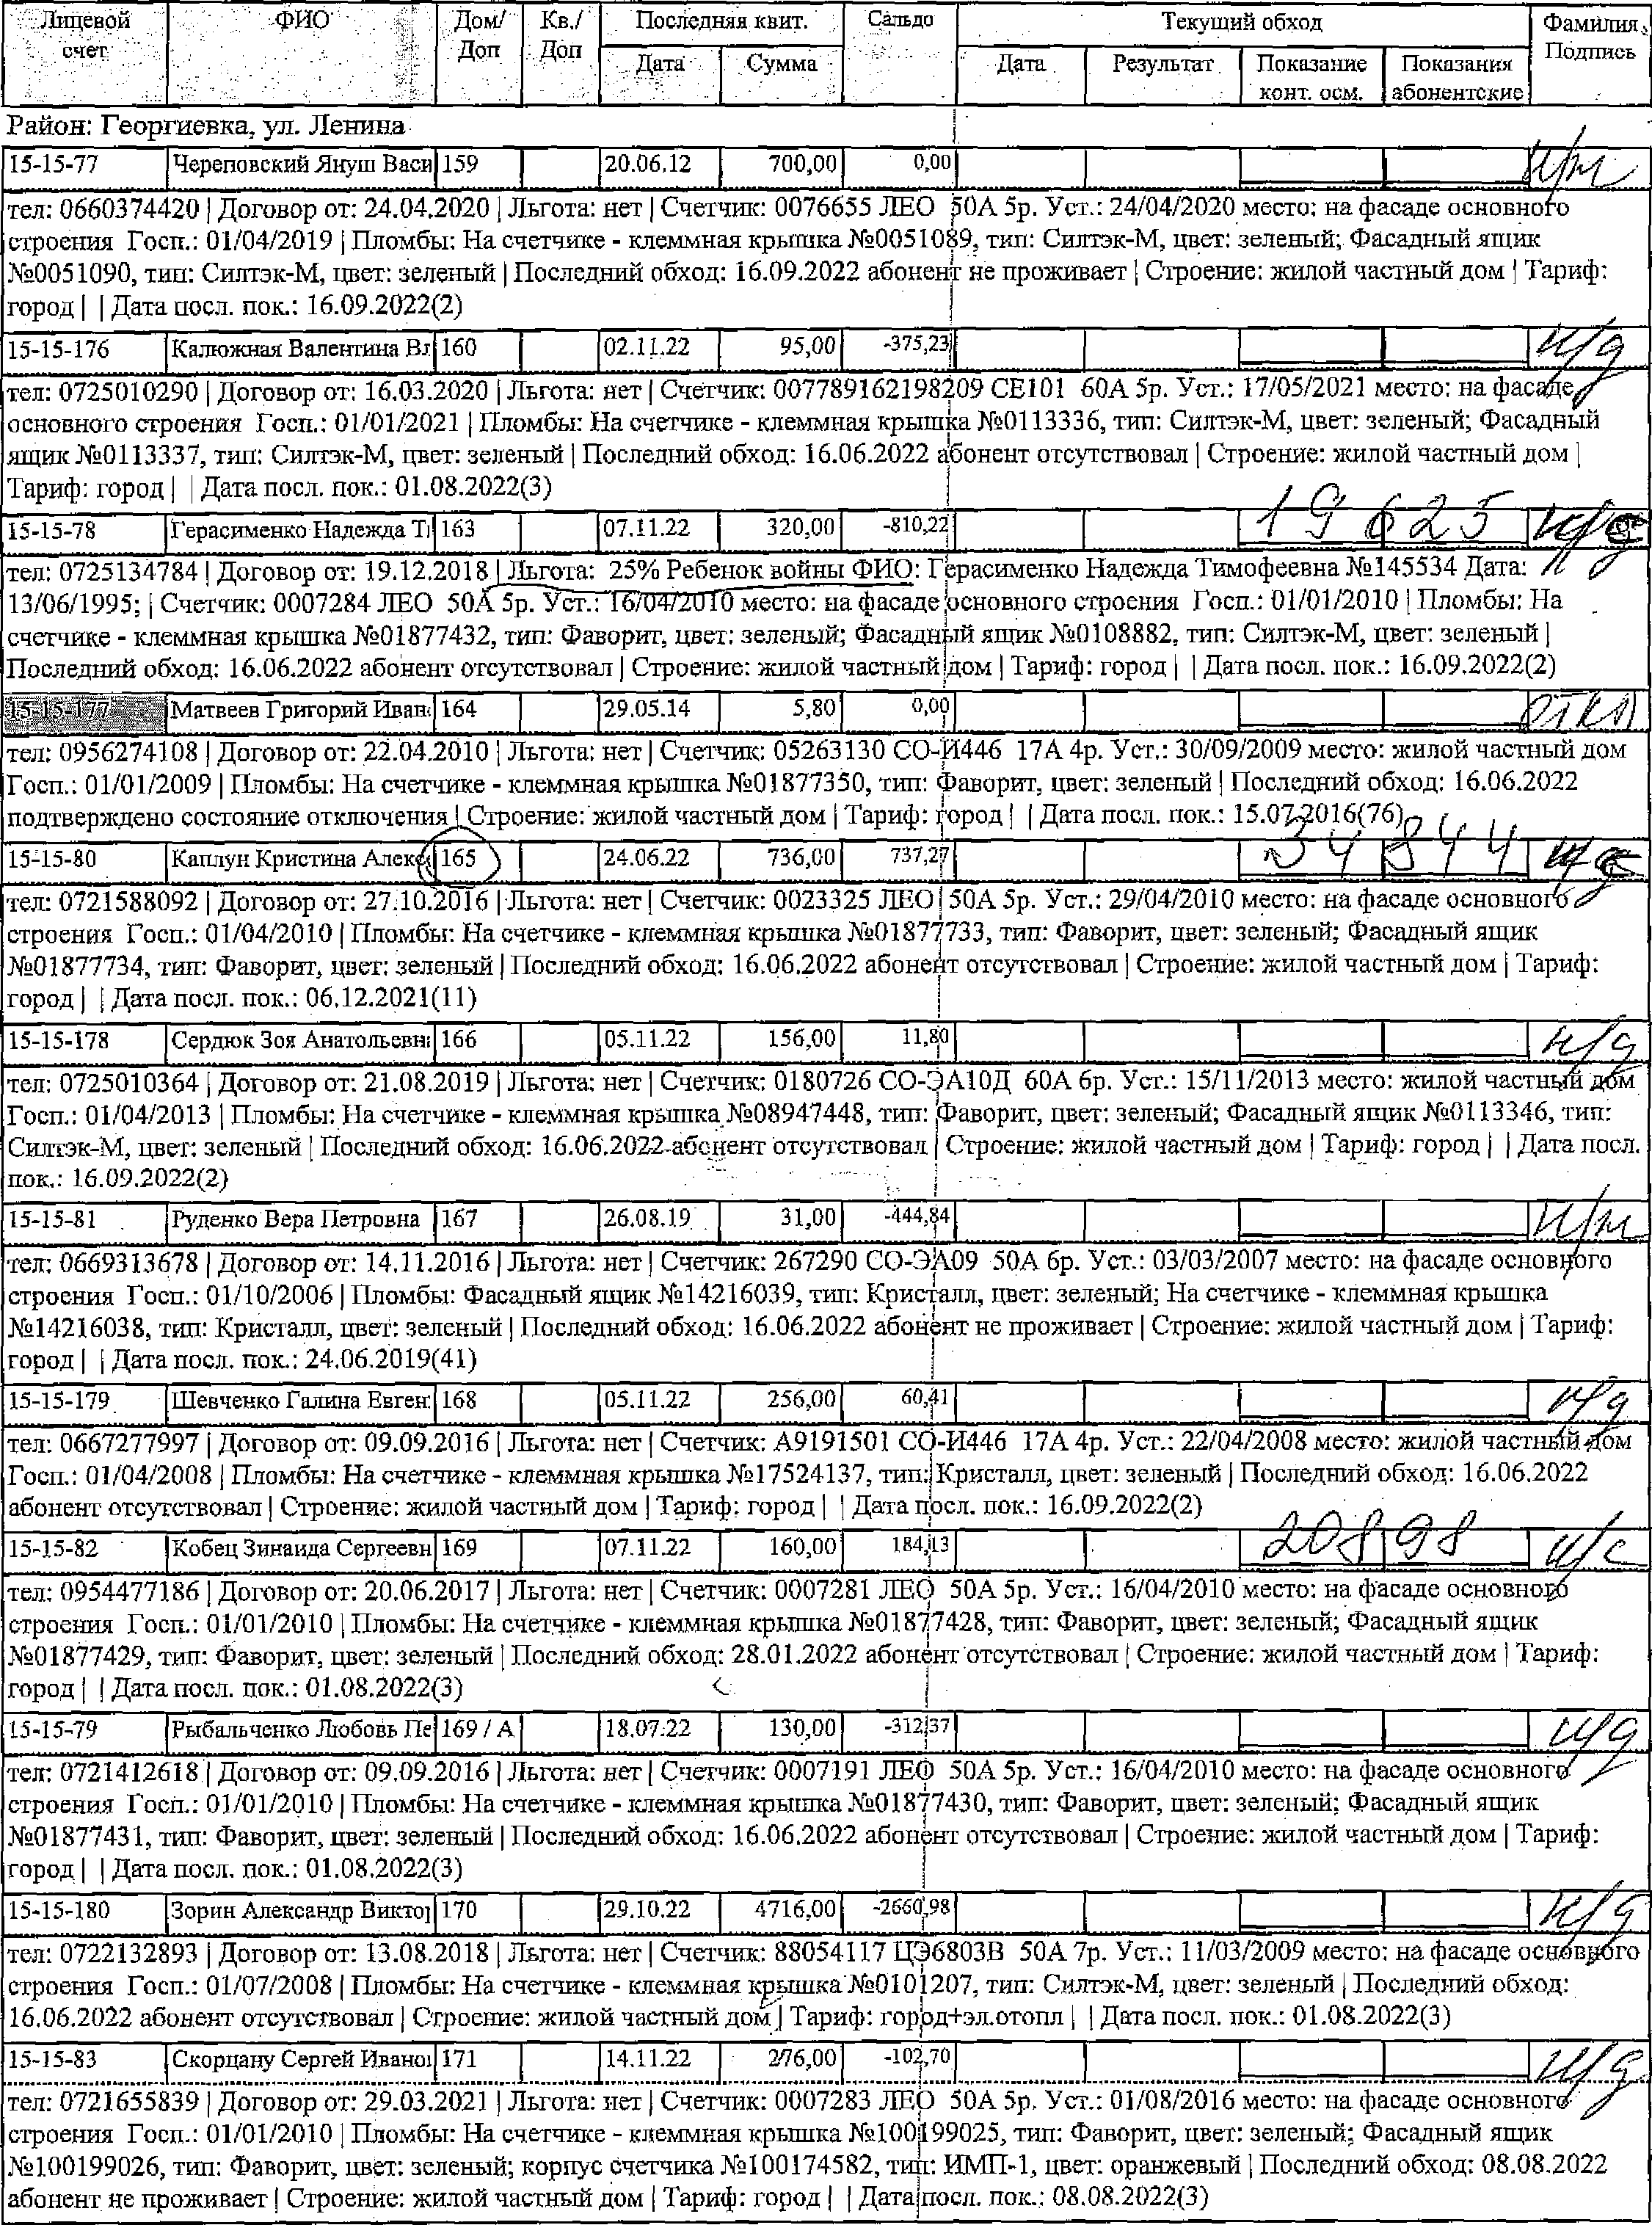 Лицевой счет ФИО Дом/Доп Кв./Доп Последняя квит. Сальдо Текущий обход Фамилия, Подпись
Дата Сумма Дата Результат Показание конт. осм. Показания абонентские
Район: Георгиевка, ул. Ленина
15-15-77 Череповский Януш Васи 159 20.06.12 700,00 0,00 н/ж
тел: 0660374420 | Договор от: 24.04.2020 | Льгота: нет | Счетчик: 0076655 ЛЕО 50А 5р. Уст.: 24/04/2020 место: на фасаде основного
строения Госп.: 01/04/2019 | Пломбы: На счетчике - клеммная крышка №0051089, тип: Силтэк-М, цвет: зеленый; Фасадный ящик
№0051090, тип: Силтэк-М, цвет: зеленый | Последний обход: 16.09.2022 абонент не проживает | Строение: жилой частный дом | Тариф:
город | | Дата посл. пок.: 16.09.2022(2)
15-15-176 Калюжная Валентина Вл 160 02.11.22 95,00 -375,23 н/д
тел: 0725010290 | Договор от: 16.03.2020 | Льгота: нет | Счетчик: 007789162198209 СЕ101 60А 5р. Уст.: 17/05/2021 место: на фасаде
основного строения Госп.: 01/01/2021 | Пломбы: На счетчике - клеммная крышка №0113336, тип: Силтэк-М, цвет: зеленый; Фасадный
ящик №0113337, тип: Силтэк-М, цвет: зеленый | Последний обход: 16.06.2022 абонент отсутствовал | Строение: жилой частный дом |
Тариф: город | | Дата посл. пок.: 01.08.2022(3)
15-15-78 Герасименко Надежда Ти 163 07.11.22 320,00 -810,22 19625
тел: 0725134784 | Договор от: 19.12.2018 | Льгота: 25% Ребенок войны ФИО: Герасименко Надежда Тимофеевна №145534 Дата:
13/06/1995; | Счетчик: 0007284 ЛЕО 50А 5р. Уст.: 16/04/2010 место: на фасаде основного строения Госп.: 01/01/2010 | Пломбы: На
счетчике - клеммная крышка №01877432, тип: Фаворит, цвет: зеленый; Фасадный ящик №0108882, тип: Силтэк-М, цвет: зеленый |
Последний обход: 16.06.2022 абонент отсутствовал | Строение: жилой частный дом | Тариф: город | | Дата посл. пок.: 16.09.2022(2)
15-15-177 Матвеев Григорий Иван 164 29.05.14 5,80 0,00 откл
тел: 0956274108 | Договор от: 22.04.2010 | Льгота: нет | Счетчик: 05263130 СО-И446 17А 4р. Уст.: 30/09/2009 место: жилой частный дом
Госп.: 01/01/2009 | Пломбы: На счетчике - клеммная крышка №01877350, тип: Фаворит, цвет: зеленый | Последний обход: 16.06.2022
подтверждено состояние отключения | Строение: жилой частный дом | Тариф: город | | Дата посл. пок.: 15.07.2016(76)
15-15-80 Каплун Кристина Алекс 165 24.06.22 736,00 737,27 34844
тел: 0721588092 | Договор от: 27.10.2016 | Льгота: нет | Счетчик: 0023325 ЛЕО 50А 5р. Уст.: 29/04/2010 место: на фасаде основного
строения Госп.: 01/04/2010 | Пломбы: На счетчике - клеммная крышка №01877733, тип: Фаворит, цвет: зеленый; Фасадный ящик
№01877734, тип: Фаворит, цвет: зеленый | Последний обход: 16.06.2022 абонент отсутствовал | Строение: жилой частный дом | Тариф:
город | | Дата посл. пок.: 06.12.2021(11)
15-15-178 Сердюк Зоя Анатольевн 166 05.11.22 156,00 11,80 н/д
тел: 0725010364 | Договор от: 21.08.2019 | Льгота: нет | Счетчик: 0180726 СО-ЭА10Д 60А 6р. Уст.: 15/11/2013 место: жилой частный дом
Госп.: 01/04/2013 | Пломбы: На счетчике - клеммная крышка №08947448, тип: Фаворит, цвет: зеленый; Фасадный ящик №0113346, тип:
Силтэк-М, цвет: зеленый | Последний обход: 16.06.2022 абонент отсутствовал | Строение: жилой частный дом | Тариф: город | | Дата посл.
пок.: 16.09.2022(2)
15-15-81 Руденко Вера Петровна 167 26.08.19 31,00 -444,84 н/ж
тел: 0669313678 | Договор от: 14.11.2016 | Льгота: нет | Счетчик: 267290 СО-ЭА09 50А 6р. Уст.: 03/03/2007 место: на фасаде основного
строения Госп.: 01/10/2006 | Пломбы: Фасадный ящик №14216039, тип: Кристалл, цвет: зеленый; На счетчике - клеммная крышка
№14216038, тип: Кристалл, цвет: зеленый | Последний обход: 16.06.2022 абонент не проживает | Строение: жилой частный дом | Тариф:
город | | Дата посл. пок.: 24.06.2019(41)
15-15-179 Шевченко Галина Евген 168 05.11.22 256,00 60,41 н/д
тел: 0667277997 | Договор от: 09.09.2016 | Льгота: нет | Счетчик: А9191501 СО-И446 17А 4р. Уст.: 22/04/2008 место: жилой частный дом
Госп.: 01/04/2008 | Пломбы: На счетчике - клеммная крышка №17524137, тип: Кристалл, цвет: зеленый | Последний обход: 16.06.2022
абонент отсутствовал | Строение: жилой частный дом | Тариф: город | | Дата посл. пок.: 16.09.2022(2)
15-15-82 Кобец Зинаида Сергеевн 169 07.11.22 160,00 184,13 20898 н/с
тел: 0954477186 | Договор от: 20.06.2017 | Льгота: нет | Счетчик: 0007281 ЛЕО 50А 5р. Уст.: 16/04/2010 место: на фасаде основного
строения Госп.: 01/01/2010 | Пломбы: На счетчике - клеммная крышка №01877428, тип: Фаворит, цвет: зеленый; Фасадный ящик
№01877429, тип: Фаворит, цвет: зеленый | Последний обход: 28.01.2022 абонент отсутствовал | Строение: жилой частный дом | Тариф:
город | | Дата посл. пок.: 01.08.2022(3)
15-15-79 Рыбальченко Любовь Пе 169 / А 18.07.22 130,00 -312,37 н/д
тел: 0721412618 | Договор от: 09.09.2016 | Льгота: нет | Счетчик: 0007191 ЛЕО 50А 5р. Уст.: 16/04/2010 место: на фасаде основного
строения Госп.: 01/01/2010 | Пломбы: На счетчике - клеммная крышка №01877430, тип: Фаворит, цвет: зеленый; Фасадный ящик
№01877431, тип: Фаворит, цвет: зеленый | Последний обход: 16.06.2022 абонент отсутствовал | Строение: жилой частный дом | Тариф:
город | | Дата посл. пок.: 01.08.2022(3)
15-15-180 Зорин Александр Виктор 170 29.10.22 4716,00 -2660,98 н/д
тел: 0722132893 | Договор от: 13.08.2018 | Льгота: нет | Счетчик: 88054117 ЦЭ6803В 50А 7р. Уст.: 11/03/2009 место: на фасаде основного
строения Госп.: 01/07/2008 | Пломбы: На счетчике - клеммная крышка №0101207, тип: Силтэк-М, цвет: зеленый | Последний обход:
16.06.2022 абонент отсутствовал | Строение: жилой частный дом | Тариф: город+эл.отопл | | Дата посл. пок.: 01.08.2022(3)
15-15-83 Скорцану Сергей Ивано 171 14.11.22 276,00 -102,70 н/д
тел: 0721655839 | Договор от: 29.03.2021 | Льгота: нет | Счетчик: 0007283 ЛЕО 50А 5р. Уст.: 01/08/2016 место: на фасаде основного
строения Госп.: 01/01/2010 | Пломбы: На счетчике - клеммная крышка №100199025, тип: Фаворит, цвет: зеленый; Фасадный ящик
№100199026, тип: Фаворит, цвет: зеленый; корпус счетчика №100174582, тип: ИМП-1, цвет: оранжевый | Последний обход: 08.08.2022
абонент не проживает | Строение: жилой частный дом | Тариф: город | | Дата посл. пок.: 08.08.2022(3)